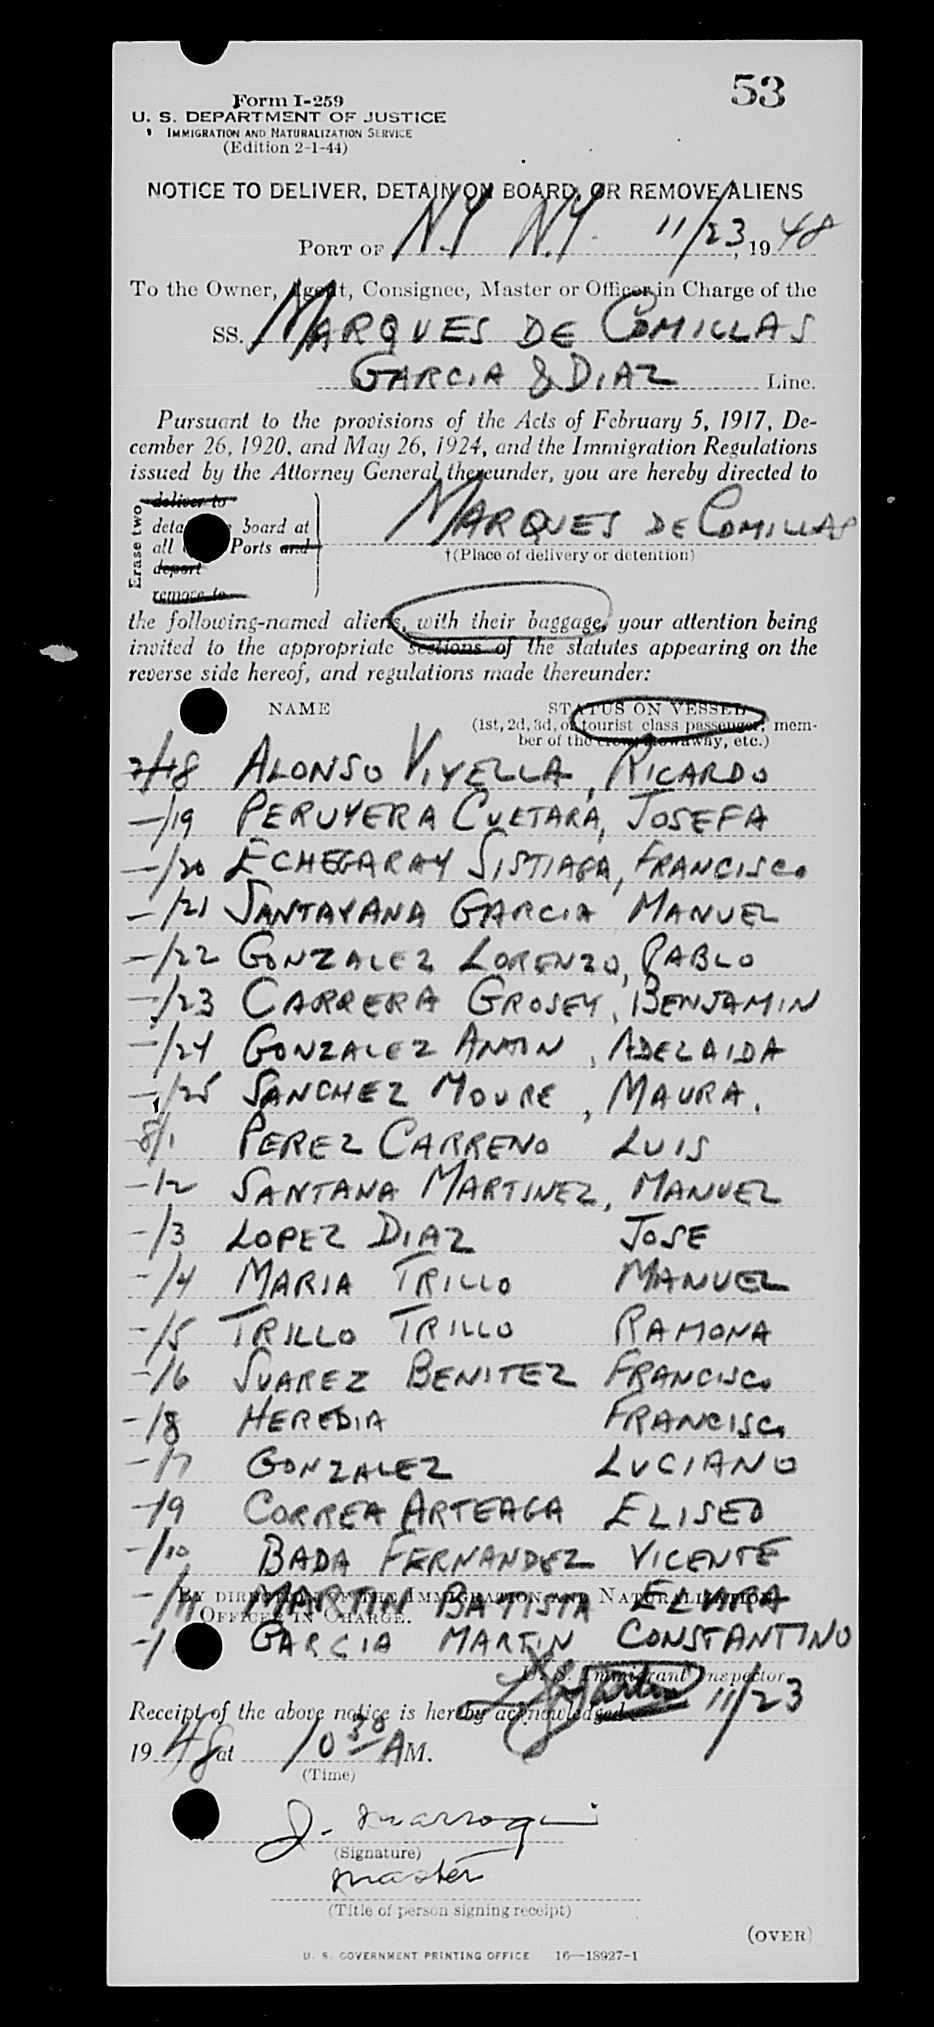 53
Form I-259
U. S. DEPARTMENT OF JUSTICE
IMMIGRATION AND NATURALIZATION SERVICE
(Edition 2-1-44)
NOTICE TO DELIVER, DETAIN ON BOARD, OR REMOVE ALIENS
PORT OF N.Y N.Y. 11/23, 1948
To the Owner, Agent, Consignee, Master or Officer in Charge of the
SS. MARQUES DE COMILLAS
GARCIA & DIAZ Line.
Pursuant to the provisions of the Acts of February 5, 1917, De-
cember 26, 1920, and May 26, 1924, and the Immigration Regulations
issued by the Attorney General thereunder, you are hereby directed to
Erase two
deliver to
deta board at
all Ports and
deport
remove to
MARQUES DE COMILLAS
†(Place of delivery or detention)
the following-named aliens, with their baggage, your attention being
invited to the appropriate sections of the statutes appearing on the
reverse side hereof, and regulations made thereunder:
NAME STATUS ON VESSEL
(1st, 2d, 3d, or tourist class passenger, mem-
ber of the crew, stowaway, etc.)
7/18 ALONSO VIYELLA, RICARDO
-/19 PERUYERA CUETARA, JOSEFA
-/20 ECHEGARAY SISTIAGA, FRANCISCO
-/21 SANTAYANA GARCIA MANUEL
-/22 GONZALEZ LORENZO, PABLO
-/23 CARRERA GROSEY, BENJAMIN
-/24 GONZALEZ ANTON, ADELAIDA
-/25 SANCHEZ MOURE, MAURA.
8/1 PEREZ CARRENO LUIS
-/2 SANTANA MARTINEZ, MANUEL
-/3 LOPEZ DIAZ JOSE
-/4 MARIA TRILLO MANUEL
-/5 TRILLO TRILLO RAMONA
-/6 SUAREZ BENITEZ FRANCISCO
-/8 HEREDIA FRANCISCO
-/7 GONZALEZ LUCIANO
-/9 CORREA ARTEAGA ELISEO
-/10 BADA FERNANDEZ VICENTE
BY DIRECTION OF THE IMMIGRATION AND NATURALIZATION
-/11 MARTIN BATISTA ELVIRA
OFFICER IN CHARGE.
-/ GARCIA MARTIN CONSTANTINO
U. S. Immigrant Inspector
Receipt of the above notice is hereby acknowledged 11/23
1948 at 10 30 AM.
(Time)
J. Marroqui
(Signature)
master
(Title of person signing receipt)
(OVER)
U. S. GOVERNMENT PRINTING OFFICE 16—18927-1